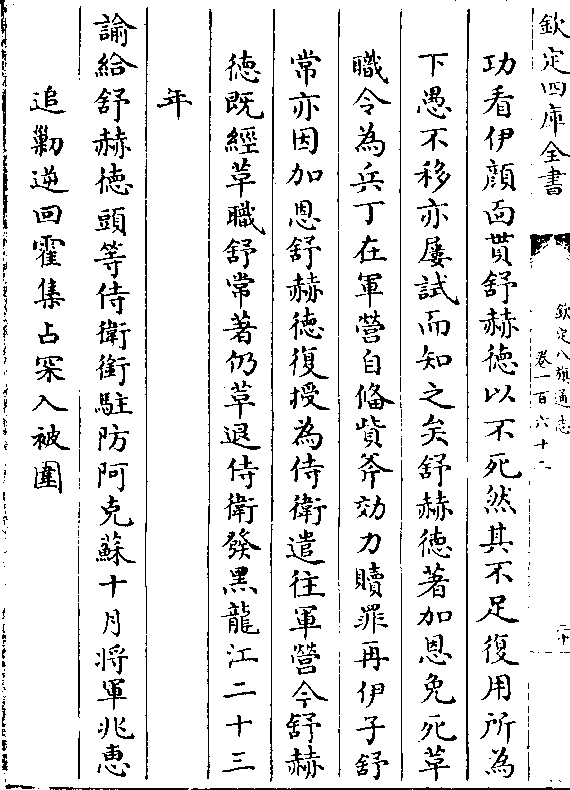 欽定四庫全書
欽定八旗通志
卷一百六十二
功看伊顔面貰舒赫徳以不死然其不足復用所為
下愚不移亦屢試而知之矣舒赫徳著加恩免死革
職令為兵丁在軍營自備貲斧効力贖罪再伊子舒
常亦因加恩舒赫徳復授為侍衛遣往軍營今舒赫
徳既經革職舒常著仍革退侍衛發黑龍江二十三
年
諭給舒赫徳頭等侍衛銜駐防阿克蘇十月將軍兆惠
追勦逆回霍集占深入被圍